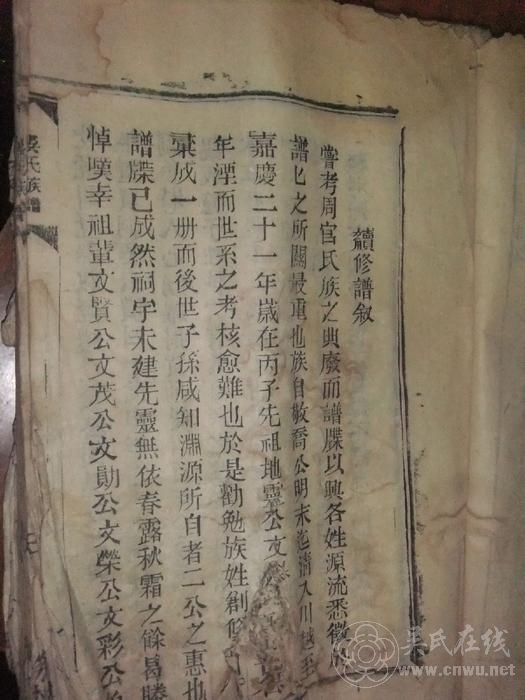 續修譜叙
嘗考周官氏族之典廢而譜牒以興各姓源流悉徵
譜匕之所關最重也族自敬喬公明末迄清入川越至
嘉慶二十一年嵗在丙子先祖地靈公文
年湮而世系之考核愈難也於是勸勉族姓創修
稟成一册而後世子孫咸知淵源所自者二公之惠也
譜牒已成然祠宇未建先靈無依春露秋霜之餘曷勝
悼嘆幸祖輩文賢公文茂公文勛公文榮公文彩公
吴氏族譜
吴氏在线
www.cnwu.net